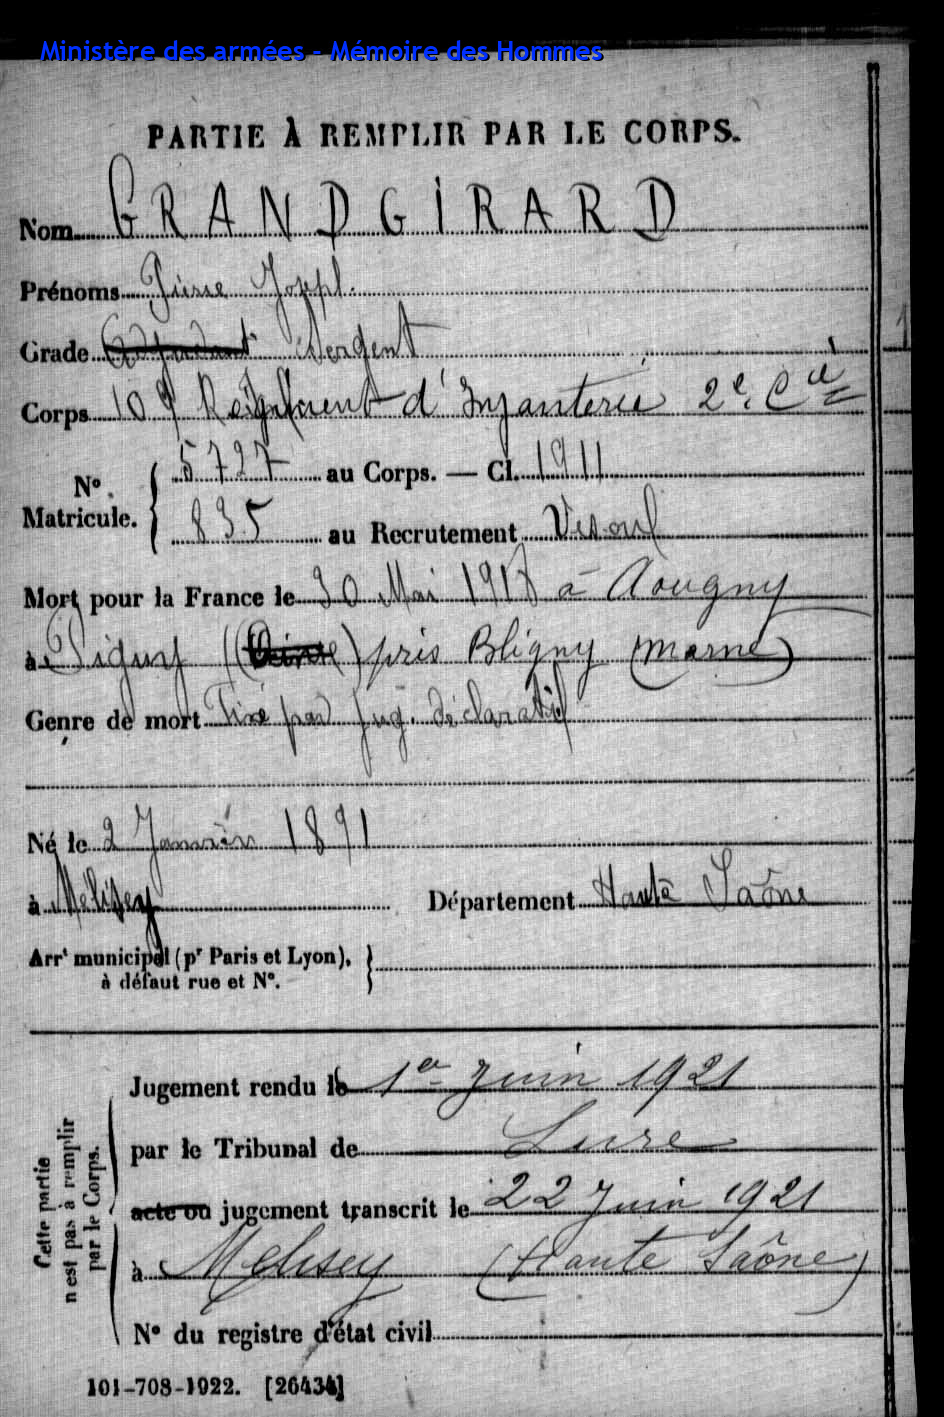 Ministère des armées - Mémoire des Hommes
PARTIE À REMPLIR PAR LE CORPS.
Nom GRANDGIRARD
Prénoms Pierre Joseph
Grade Adjudant Sergent
Corps 109 Régiment d'Infanterie 2e Cie
N° Matricule. 5727 au Corps. — Cl. 1911
835 au Recrutement Vesoul
Mort pour la France le 30 Mai 1918 à Aougny
à (Aisne) près Bligny (Marne)
Genre de mort Fixé par jug. déclaratif
Né le 2 Janvier 1891
à Mélisey Département Haute Saône
Arrt municipal (pr Paris et Lyon), à défaut rue et N°.
Cette partie n'est pas à remplir par le Corps.
Jugement rendu le 1er Juin 1921
par le Tribunal de Lure
acte ou jugement transcrit le 22 Juin 1921
à Melisey (Haute Saône)
N° du registre d'état civil
101-708-1922. [26434]